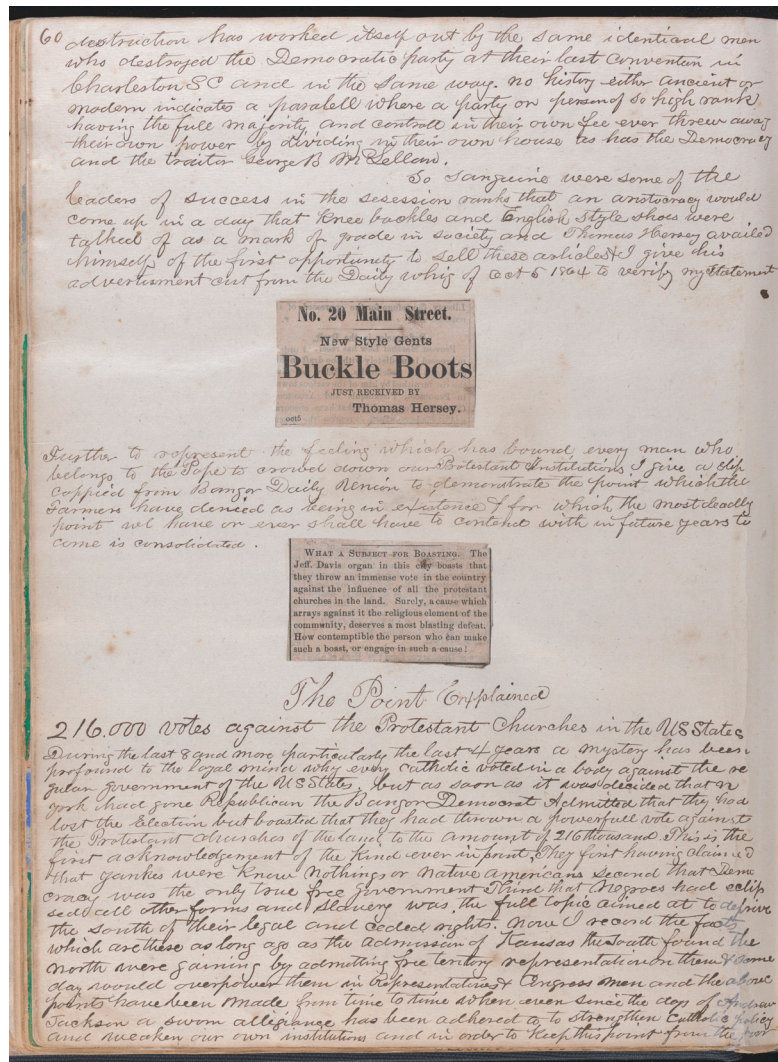 60 destruction has worked itself out by the same identical men
who destroyed the Democratic party at their last convention in
Charleston SC and in the same way. no history either ancient or
modern indicates a paralell where a party or person of so high rank
having the full majority and controll in their own fee ever threw away
their own power by dividing in their own house as has the Democracy
and the traitor George B McLellan.
So sanguine were some of the
leaders of success in the sesession ranks that an aristocracy would
come up in a day that knee buckles and English style shoes were
talked of as a mark of grade in society and Thomas Hersey availed
himself of the first opportunity to sell these articles & I give his
advertisment cut from the Daily whig of Oct 5 1864 to verify my statement
No. 20 Main Street.
New Style Gents
Buckle Boots
JUST RECEIVED BY
Thomas Hersey.
oct5
Further to represent the feeling which has bound every man who
belongs to the Pope to crowd down our Protestant Institutions I give a slip
coppied from Bangor Daily Union to demonstrate the point which the
Farmers have denied as being in existence & for which the most deadly
point we have or ever shall have to contend with in future years to
come is consolidated.
WHAT A SUBJECT FOR BOASTING. The
Jeff. Davis organ in this city boasts that
they threw an immense vote in the country
against the influence of all the protestant
churches in the land. Surely, a cause which
arrays against it the religious element of the
community, deserves a most blasting defeat.
How contemptible the person who can make
such a boast, or engage in such a cause!
The Point Explained
216.000 votes against the Protestant Churches in the US States
During the last 8 and more particularly the last 4 years a mystery has been
profound to the loyal mind why every Catholic voted in a body against the re
gular government of the US States, but as soon as it was decided that N
york had gone Republican the Bangor Democrat Admitted that they had
lost the Election but boasted that they had thrown a powerfull vote against
the Protestant churches of the land, to the amount of 216 thousand. This is the
first acknowledgement of the Kind ever in print. They first having claimed
that yankes were Know Nothings or Native americans second that Demo
cracy was the only true free government Third that Negroes had eclip
sed all other forms and slavery was the full topic aimed at to deprive
the South of their legal and ceded rights. Now I record the facts
which are these as long ago as the admission of Kansas the South found the
North were gaining by admitting free teritory representation on them & some
day would overpower them in Representatives & Congress men and the above
points have been made from time to time when even since the days of Andrew
Jackson a sworn allegiance has been adhered to to strengthen Catholic policy
and weaken our own institutions and in order to keep this point from the